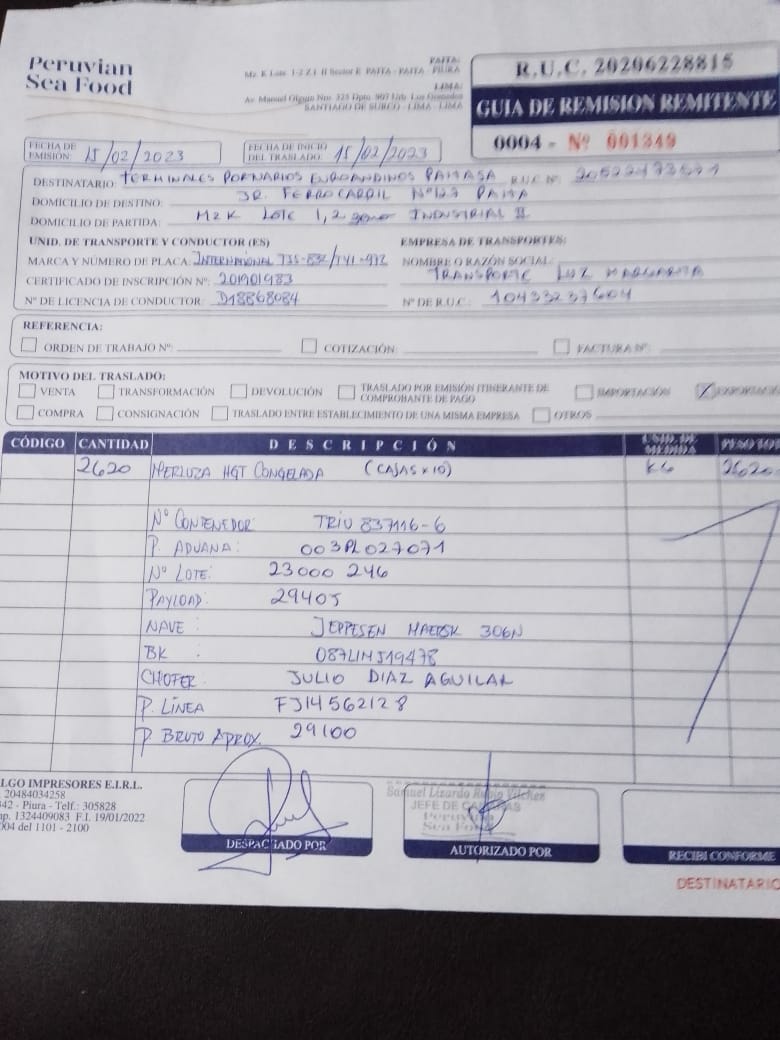 Peruvian
Sea Food
PAITA:
Mz. K Lote 1-2 Z.I. II Sector E PAITA - PAITA - PIURA
LIMA:
SANTIAGO DE SURCO - LIMA - LIMA
R.U.C. 20206228815
GUIA DE REMISION REMITENTE
0004 - Nº 001349
FECHA DE EMISIÓN: 15/02/2023
FECHA DE INICIO DEL TRASLADO: 15/02/2023
DESTINATARIO: TERMINALES PORTUARIOS EUROANDINOS PAITA SA R.U.C. Nº
DOMICILIO DE DESTINO: JR. FERROCARRIL Nº 127 PAITA
DOMICILIO DE PARTIDA: MZ K LOTE 1,2 INDUSTRIAL II
UNID. DE TRANSPORTE Y CONDUCTOR (ES)
EMPRESA DE TRANSPORTES:
MARCA Y NÚMERO DE PLACA: INTERNATIONAL
NOMBRE O RAZÓN SOCIAL:
TRANSPORTE LUZ MARGARITA
CERTIFICADO DE INSCRIPCIÓN Nº: 201901983
Nº DE LICENCIA DE CONDUCTOR: D18868084
Nº DE R.U.C.: 10433237604
REFERENCIA:
ORDEN DE TRABAJO Nº: COTIZACIÓN: FACTURA Nº:
MOTIVO DEL TRASLADO:
VENTA TRANSFORMACIÓN DEVOLUCIÓN TRASLADO POR EMISIÓN ITINERANTE DE COMPROBANTE DE PAGO IMPORTACIÓN
COMPRA CONSIGNACIÓN TRASLADO ENTRE ESTABLECIMIENTO DE UNA MISMA EMPRESA OTROS
CÓDIGO CANTIDAD DESCRIPCIÓN UNID. DE MEDIDA PESO TOT
2620 MERLUZA HGT CONGELADA (CAJAS x 10) KG
Nº CONTENEDOR: TRIU 837116-6
P. ADUANA: 003PL027071
Nº LOTE: 23000 246
PAYLOAD: 29405
NAVE: JEPPESEN MAERSK 306N
BK: 087LIMJ19478
CHOFER: JULIO DIAZ AGUILAR
P. LÍNEA FJ14562128
P. BRUTO APROX. 29100
LGO IMPRESORES E.I.R.L.
20484034258
342 - Piura - Telf.: 305828
mp. 1324409083 F.I. 19/01/2022
004 del 1101 - 2100
Samuel Lizardo Rubio Vilchez
JEFE DE
Peruvian
Sea Food
DESPACHADO POR
AUTORIZADO POR
RECIBI CONFORME
DESTINATARIO